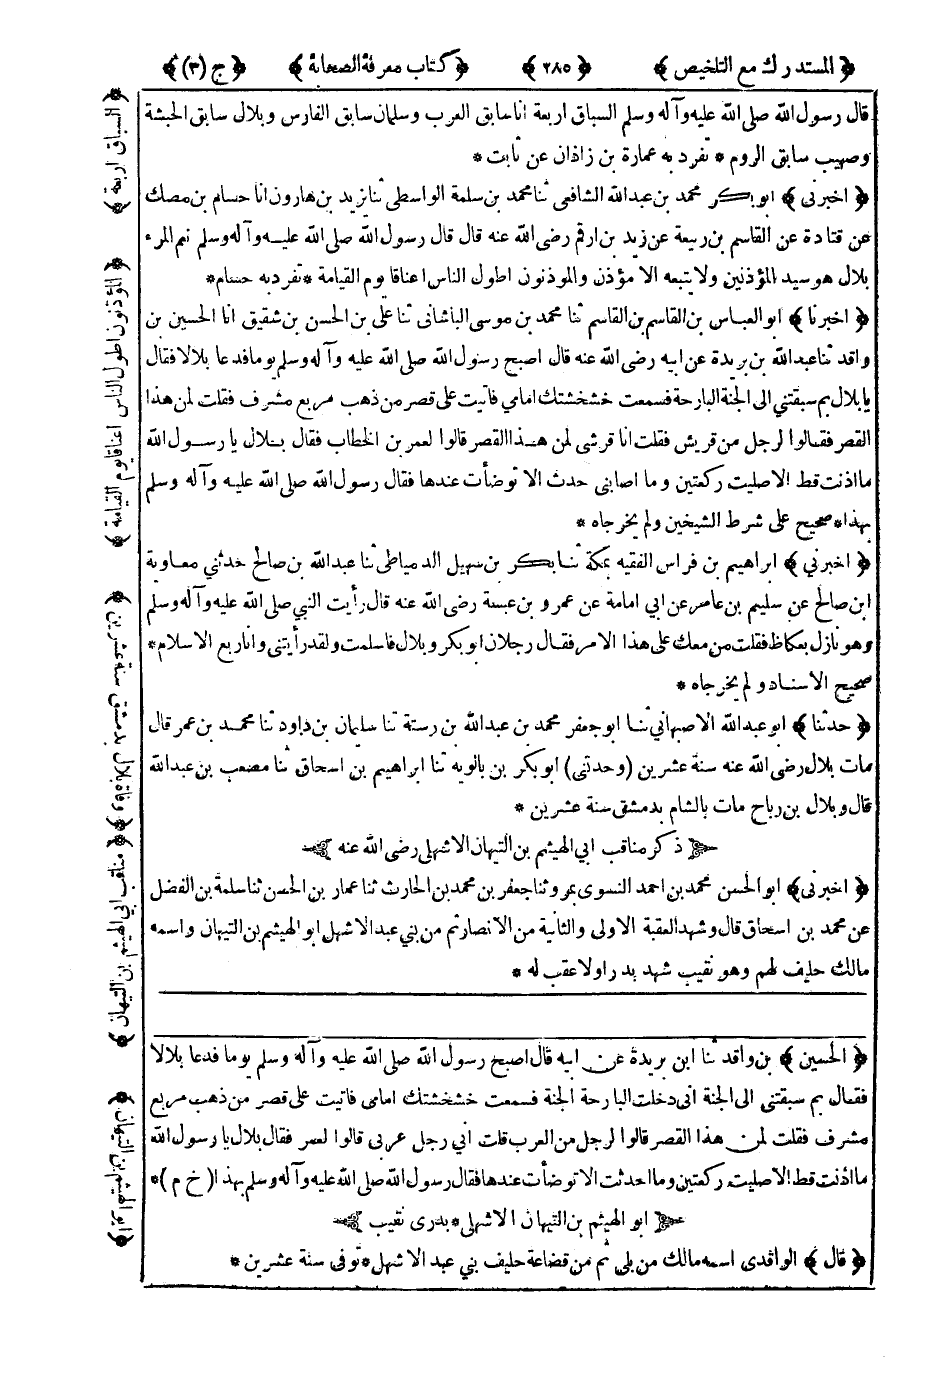 ﴿ المستدرك مع التلخيص ﴾ ﴿ ٢٨٥ ﴾ ﴿ كتاب معرفة الصحابة ﴾ ﴿ ج (٣) ﴾
قال رسول الله صلى الله عليه وآله وسلم السباق اربعة انا سابق العرب وسلمان سابق الفارس وبلال سابق الحبشة
وصهيب سابق الروم * تفرد به عمارة بن زاذان عن ثابت *
﴿ اخبرنى ﴾ ابوبكر محمد بن عبدالله الشافعى ثنا محمد بن سلمة الواسطى ثنا يزيد بن هارون انا حسام بن مصك
عن قتادة عن القاسم بن ربيعة عن زيد بن ارقم رضى الله عنه قال قال رسول الله صلى الله عليه وآله وسلم نعم المرء
بلال هو سيد المؤذنين ولا يتبعه الا مؤذن والموذنون اطول الناس اعناقا يوم القيامة * تفرد به حسام *
﴿ اخبرنا ﴾ ابو العباس بن القاسم بن القاسم ثنا محمد بن موسى الباشانى ثنا على بن الحسن بن شقيق انا الحسين بن
واقد ثنا عبد الله بن بريدة عن ابيه رضى الله عنه قال اصبح رسول الله صلى الله عليه وآله وسلم يوما فدعا بلالا فقال
يا بلال بم سبقتني الى الجنة البارحة فسمعت خشخشتك امامي فاتيت على قصر من ذهب مربع مشرف فقلت لمن هذا
القصر فقالوا لرجل من قريش فقلت انا قرشى لمن هذا القصر قالوا لعمر بن الخطاب فقال بلال يا رسول الله
ما اذنت قط الاصليت ركعتين وما اصابنى حدث الا توضأت عندها فقال رسول الله صلى الله عليه وآله وسلم
بهذا * صحيح على شرط الشيخين ولم يخرجاه *
﴿ اخبرني ﴾ ابراهيم بن فراس الفقيه بمكة ثنا بكر بن سهيل الدمياطى ثنا عبدالله بن صالح حدثني معاوية
ابن صالح عن سليم بن عامر عن ابي امامة عن عمرو بن عبسة رضى الله عنه قال رأيت النبي صلى الله عليه وآله وسلم
وهو نازل بعكاظ فقلت من معك على هذا الامر فقال رجلان ابوبكر وبلال فاسلمت ولقد رأيتنى وانا ربع الاسلام *
صحيح الاسناد ولم يخرجاه *
﴿ حدثنا ﴾ ابو عبدالله الاصبهاني ثنا ابو جعفر محمد بن عبدالله بن رستة ثنا سليمان بن داود ثنا محمد بن عمر قال
مات بلال رضى الله عنه سنة عشرين (وحدثنى) ابو بكر بن بالويه ثنا ابراهيم بن اسحاق ثنا مصعب بن عبدالله
قال وبلال بن رباح مات بالشام بدمشق سنة عشرين *
ذكر مناقب ابي الهيثم بن التيهان الاشهلى رضى الله عنه
﴿ اخبرنى ﴾ ابو الحسن محمد بن احمد النسوى بمرو ثنا جعفر بن محمد بن الحارث ثنا عمار بن الحسن ثنا سلمة بن الفضل
عن محمد بن اسحاق قال وشهد العقبة الاولى والثانية من الانصار ثم من بني عبد الاشهل ابو الهيثم بن التيهان واسمه
مالك حليف لهم وهو نقيب شهد بدرا ولا عقب له *
﴿ الحسين ﴾ بن واقد ثنا ابن بريدة عن ابيه قال اصبح رسول الله صلى الله عليه وآله وسلم يوما فدعا بلالا
فقال بم سبقتنى الى الجنة انى دخلت البارحة الجنة فسمعت خشخشتك امامى فاتيت على قصر من ذهب مربع
مشرف فقلت لمن هذا القصر قالوا لرجل من العرب قلت انى رجل عربى قالوا لعمر فقال بلال يا رسول الله
ما اذنت قط الاصليت ركعتين وما احدثت الا توضأت عندها فقال رسول الله صلى الله عليه وآله وسلم بهذا (خ م) *
ابو الهيثم بن التيهان الاشهلى * بدرى نقيب
﴿ قال ﴾ الواقدى اسمه مالك من بلى ثم من قضاعة حليف بني عبد الاشهل * توفى سنة عشرين *
﴿ السباق اربعة ﴾
﴿ المؤذنون اطول الناس اعناقا يوم القيامة ﴾
﴿ وفاة بلال بدمشق سنة عشرين ﴾
﴿ مناقب ابي الهيثم بن التيهان ﴾
﴿ ابو الهيثم بن التيهان ﴾